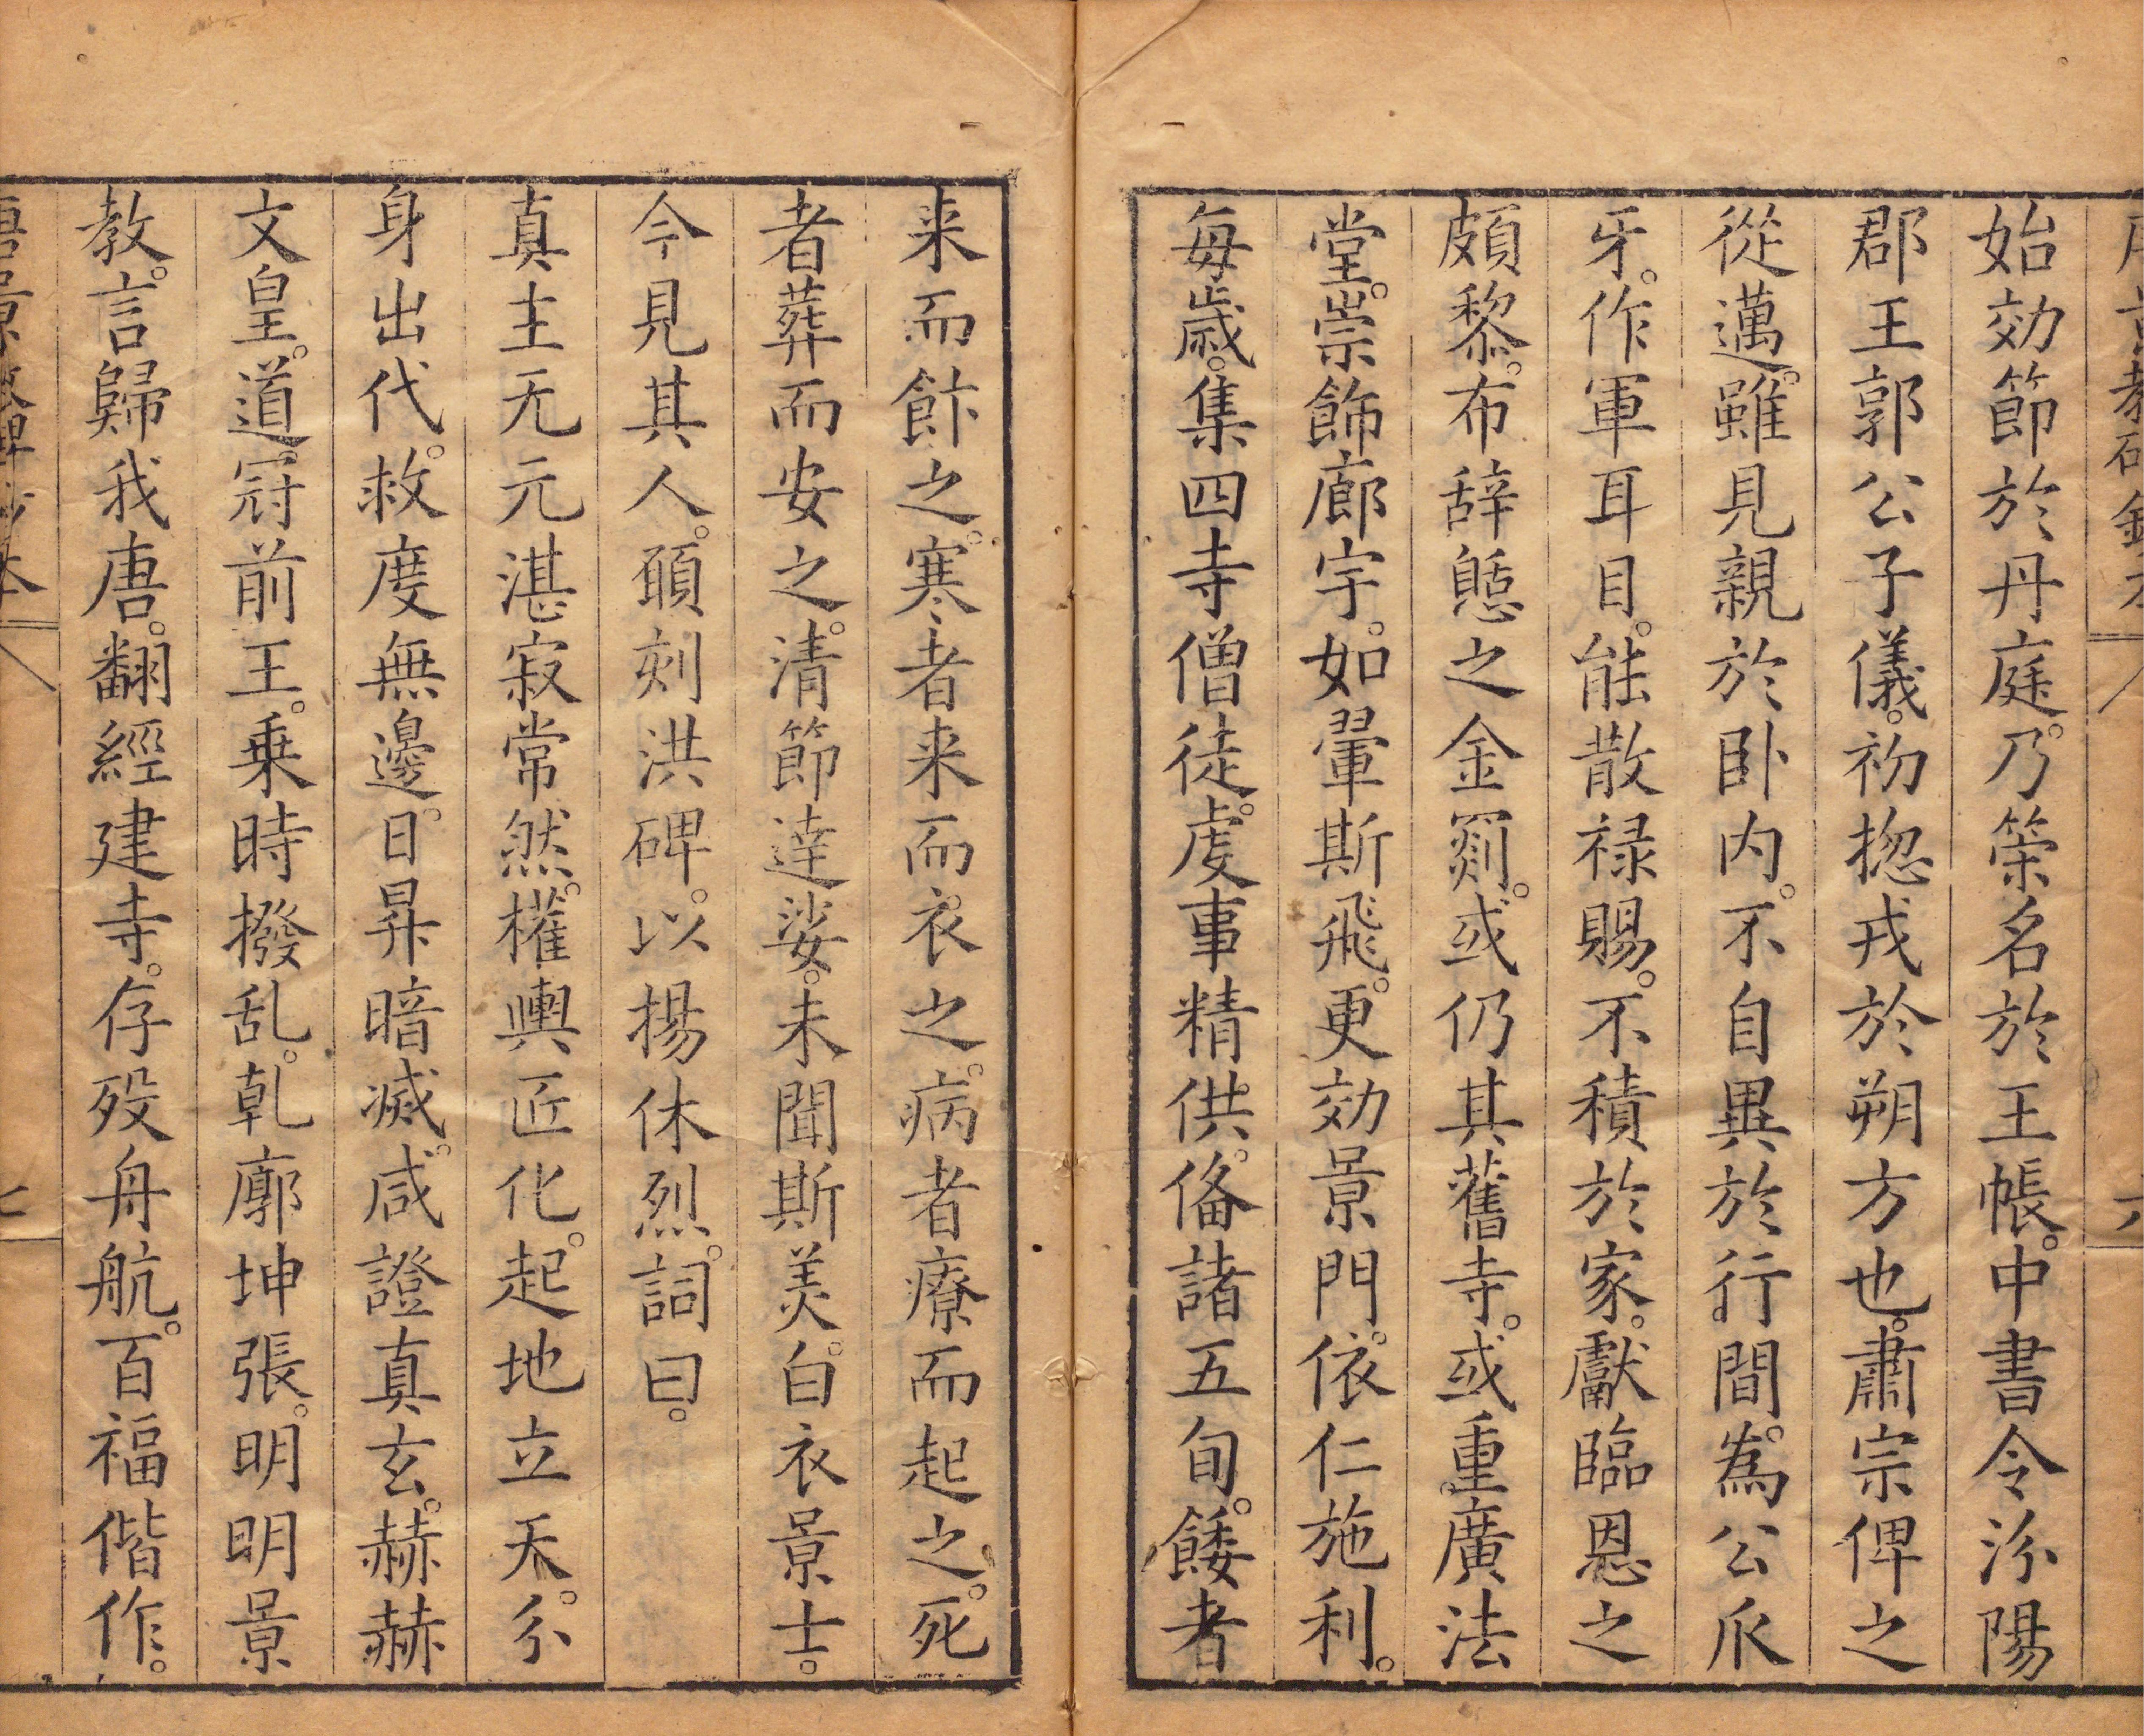 始効節於丹庭。乃策名於王帳。中書令汾陽
郡王郭公子儀。初揔戎於朔方也。肅宗俾之
從邁。雖見親於卧内。不自異於行間。為公爪
牙。作軍耳目。能散禄賜。不積於家。獻臨恩之
頗黎。布辞憩之金罽。或仍其舊寺。或重廣法
堂。崇飾廊宇。如翬斯飛。更効景門。依仁施利。
每歲。集四寺僧徒。虔事精供。俻諸五旬。餧者
来而飰之。寒者来而衣之。病者療而起之。死
者葬而安之。清節達娑。未聞斯美。白衣景士。
今見其人。願刻洪碑。以揚休烈。詞曰。
真主无元湛寂常然。權輿匠化。起地立天。分
身出代。救度無邊。日昇暗滅。咸證真玄。赫赫
文皇。道冠前王。乗時撥乱。乹廓坤張。明明景
教。言歸我唐。翻經建寺。存歿舟航。百福偕作。
唐景教碑鈔本
七